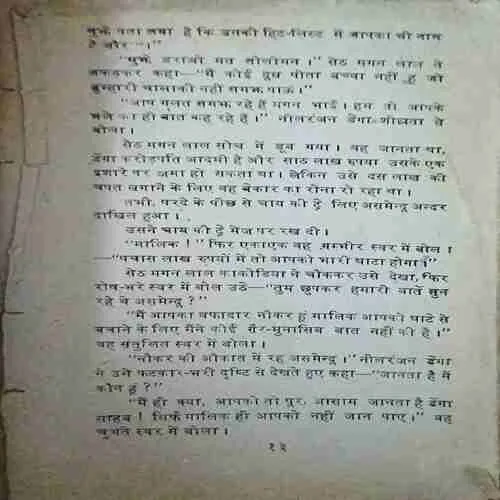 मुझे पता लगा है कि उनकी हिट-लिस्ट में आपका भी नाम
है और…।”
“मुझे डराओ मत नीलोगन।” सेठ मगन लाल ने
कहा—“मैं कोई दूध पीता बच्चा नहीं हूं जो
तुम्हारी चालाकी नहीं समझ पाऊं।”
“आप गलत समझ रहे हैं मगन भाई। हम तो आपके
भले की ही बात कह रहे हैं।” नीलरंजन डेंगा शीघ्रता से
बोला।
सेठ मगन लाल सोच में डूब गया। वह जानता था,
डेंगा करोड़पति आदमी है और साठ लाख रुपया उसके एक
इशारे पर जमा हो सकता था। लेकिन उसे दस लाख की
चपत लगाने के लिए वह बेकार का रोना रो रहा था।
तभी, परदे के पीछे से चाय की ट्रे लिए असमेन्दू अन्दर
दाखिल हुआ।
उसने चाय की ट्रे मेज पर रख दी।
“मालिक!” फिर एकाएक वह गम्भीर स्वर में बोला
—“पचास लाख रुपयों में तो आपको भारी घाटा होगा।”
सेठ मगन लाल काकोडिया ने चौंककर उसे देखा, फिर
रोष-भरे स्वर में बोल उठे—“तुम छुपकर हमारी बातें सुन
रहे थे असमेन्दू?”
“मैं आपका वफादार नौकर हूं मालिक आपको घाटे से
बचाने के लिए मैंने कोई गैर-मुनासिब बात नहीं की है।”
वह संतुलित स्वर में बोला।
“नौकर की औकात में रह असमेन्दू।” नीलरंजन डेंगा
ने उसे फटकार-भरी दृष्टि से देखते हुए कहा—“जानता है मैं
कौन हूं?”
“मैं ही क्या, आपको तो पूरा आसाम जानता है डेंगा
साहब! सिर्फ मालिक ही आपको नहीं जान पाए।” वह
चुभते स्वर में बोला।
१३